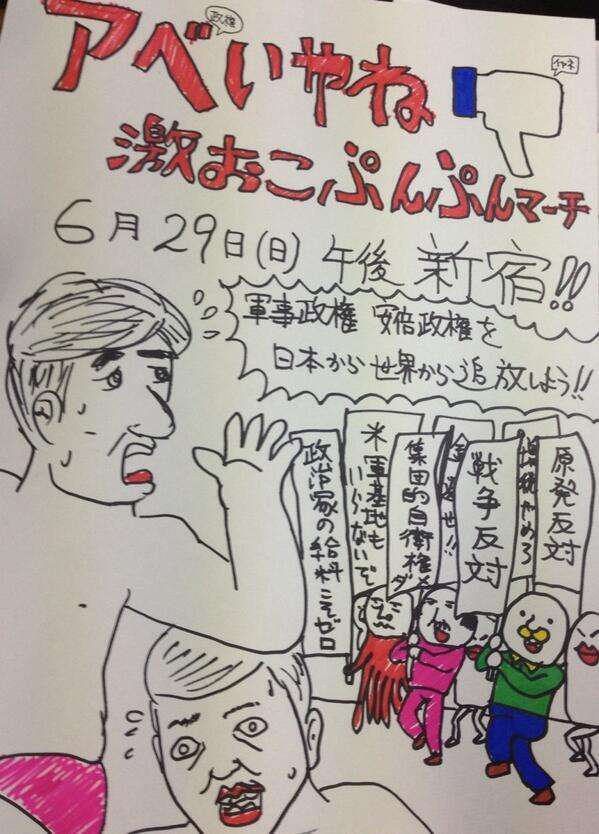 政権
アベいやね
イヤネ
激おこぷんぷんマーチ
6月29日(日)午後 新宿!!
軍事政権 安倍政権を
日本から世界から追放しよう!!
原発反対
増税やめろ
戦争反対
返せ!!
集団的自衛権ダメ
米軍基地も
いらないで
政治家の給料こそゼロ